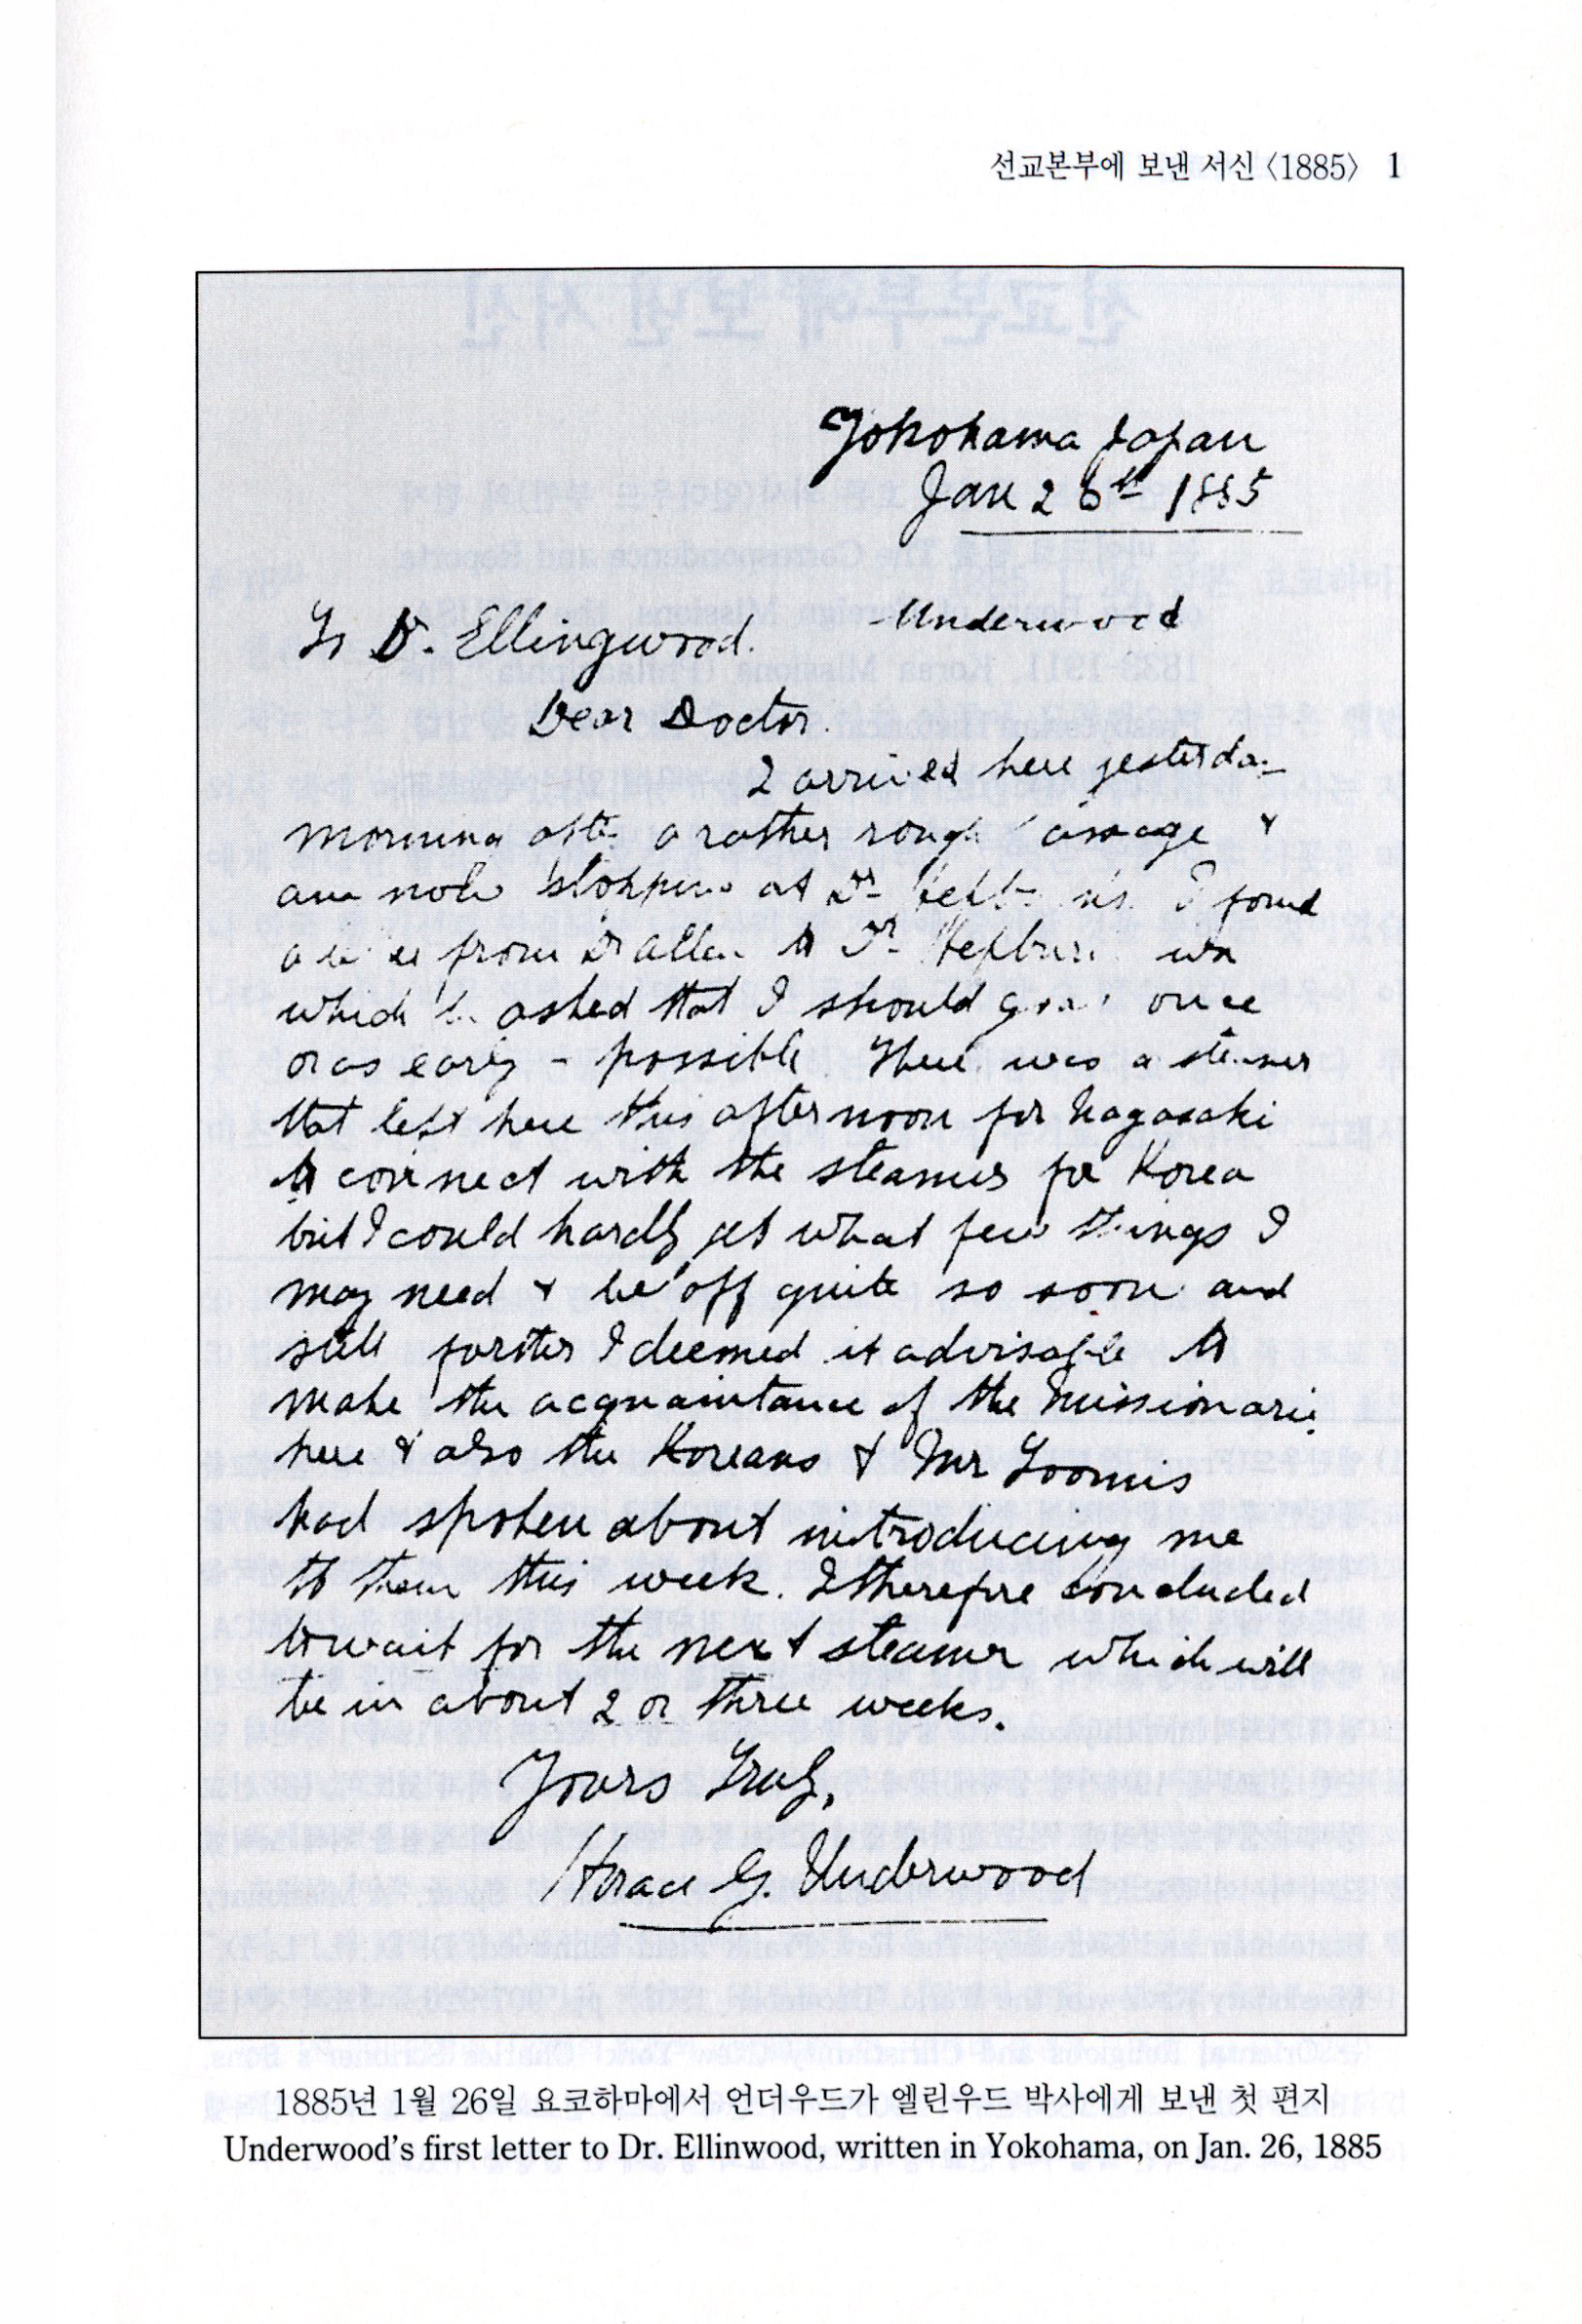 선교본부에 보낸 서신 〈1885〉 1
Yokohama Japan
Jan 26th 1885
To Dr. Ellingwood. -Underwood
Dear Doctor.
I arrived here yesterday
morning after a rather rough passage &
am now stopping at Dr Hepburn's. I found
a from Dr Allen to Dr Hepburn in
which he asked that I should go at once
or as early as possible. There was a steamer
that left here this afternoon for Nagasaki
to connect with the steamer for Korea
but I could hardly get what few things I
may need & be off quite so soon and
still I deemed it advisable to
make the acquaintance of the Missionaries
here & also the Koreans & Mr Loomis
had spoken about introducing me
to them this week. I therefore concluded
to wait for the next steamer which will
be in about 2 or three weeks.
Yours Truly,
Horace G. Underwood
1885년 1월 26일 요코하마에서 언더우드가 엘린우드 박사에게 보낸 첫 편지
Underwood's first letter to Dr. Ellinwood, written in Yokohama, on Jan. 26, 1885